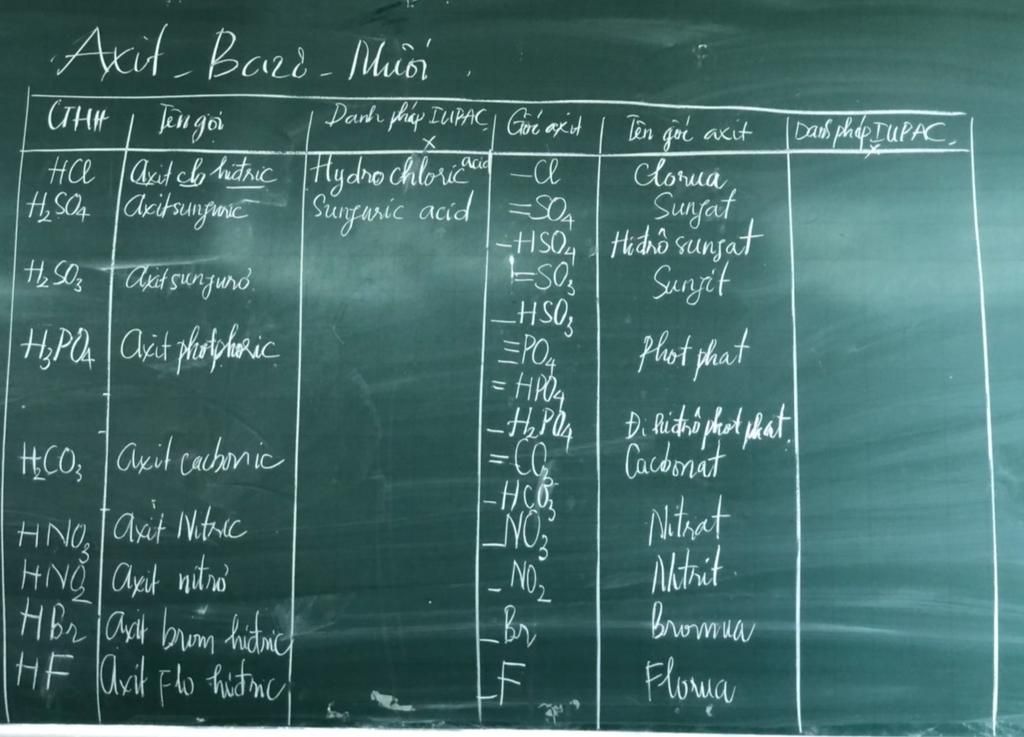 Axit - Bazơ - Muối
CTHH Tên gọi Danh pháp IUPAC Gốc axit Tên gốc axit Danh pháp IUPAC
x x
HCl Axit clo hiđric Hydrochloric acid -Cl Clorua
H₂SO₄ Axit sunfuric Sunfuric acid =SO₄ Sunfat
-HSO₄ Hiđrô sunfat
H₂SO₃ Axit sunfurơ =SO₃ Sunfit
-HSO₃
H₃PO₄ Axit photphoric ≡PO₄ Photphat
=HPO₄
-H₂PO₄ Đi hiđrô photphat
H₂CO₃ Axit cacbonic =CO₃ Cacbonat
-HCO₃
HNO₃ Axit Nitric -NO₃ Nitrat
HNO₂ Axit nitrơ -NO₂ Nitrit
HBr Axit brom hiđric -Br Bromua
HF Axit Flo hiđric -F Florua